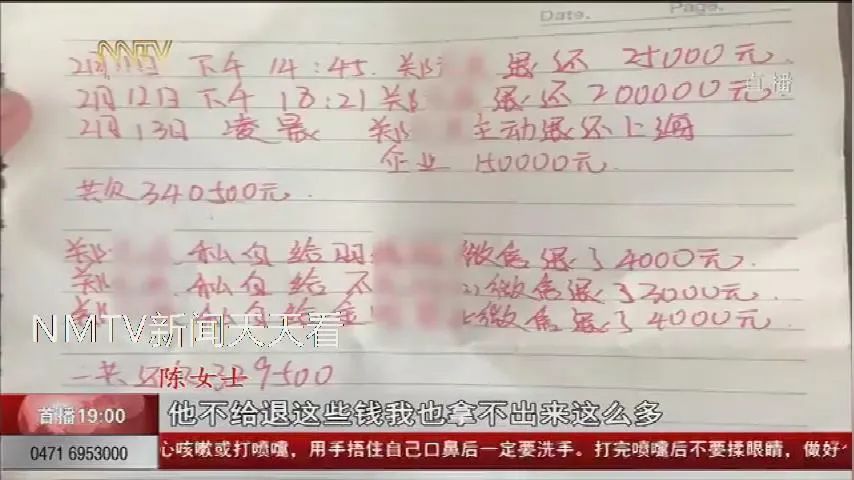 Date. Page.
NMTV
2月 日 下午 14:45. 郑 退还 25000元
直播
2月12日 下午 18:21 郑 退还 200000元
2月13日 凌晨 郑 主动退还上海
企业 150000元.
共欠340500元.
郑 私自给羽 微信退了4000元.
郑 私自给 微信退了3000元.
郑 私自给金 微信退了4000元.
NMTV新闻天天看
一共还 9500
陈女士
首播19:00
他不给退这些钱我也拿不出来这么多
0471 6953000
心咳嗽或打喷嚏，用手捂住自己口鼻后一定要洗手。打完喷嚏后不要揉眼睛，做好